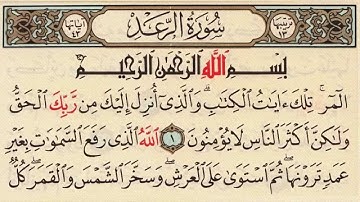 ترتيبها ١٣ سُورَةُ الرَّعْدِ آياتها ٤٣
بِسْمِ اللَّهِ الرَّحْمَٰنِ الرَّحِيمِ
الٓمٓر ۚ تِلْكَ ءَايَٰتُ ٱلْكِتَٰبِ ۗ وَٱلَّذِىٓ أُنزِلَ إِلَيْكَ مِن رَّبِّكَ ٱلْحَقُّ
وَلَٰكِنَّ أَكْثَرَ ٱلنَّاسِ لَا يُؤْمِنُونَ ١ ٱللَّهُ ٱلَّذِى رَفَعَ ٱلسَّمَٰوَٰتِ بِغَيْرِ
عَمَدٍ تَرَوْنَهَا ۖ ثُمَّ ٱسْتَوَىٰ عَلَى ٱلْعَرْشِ ۖ وَسَخَّرَ ٱلشَّمْسَ وَٱلْقَمَرَ ۖ كُلٌّ